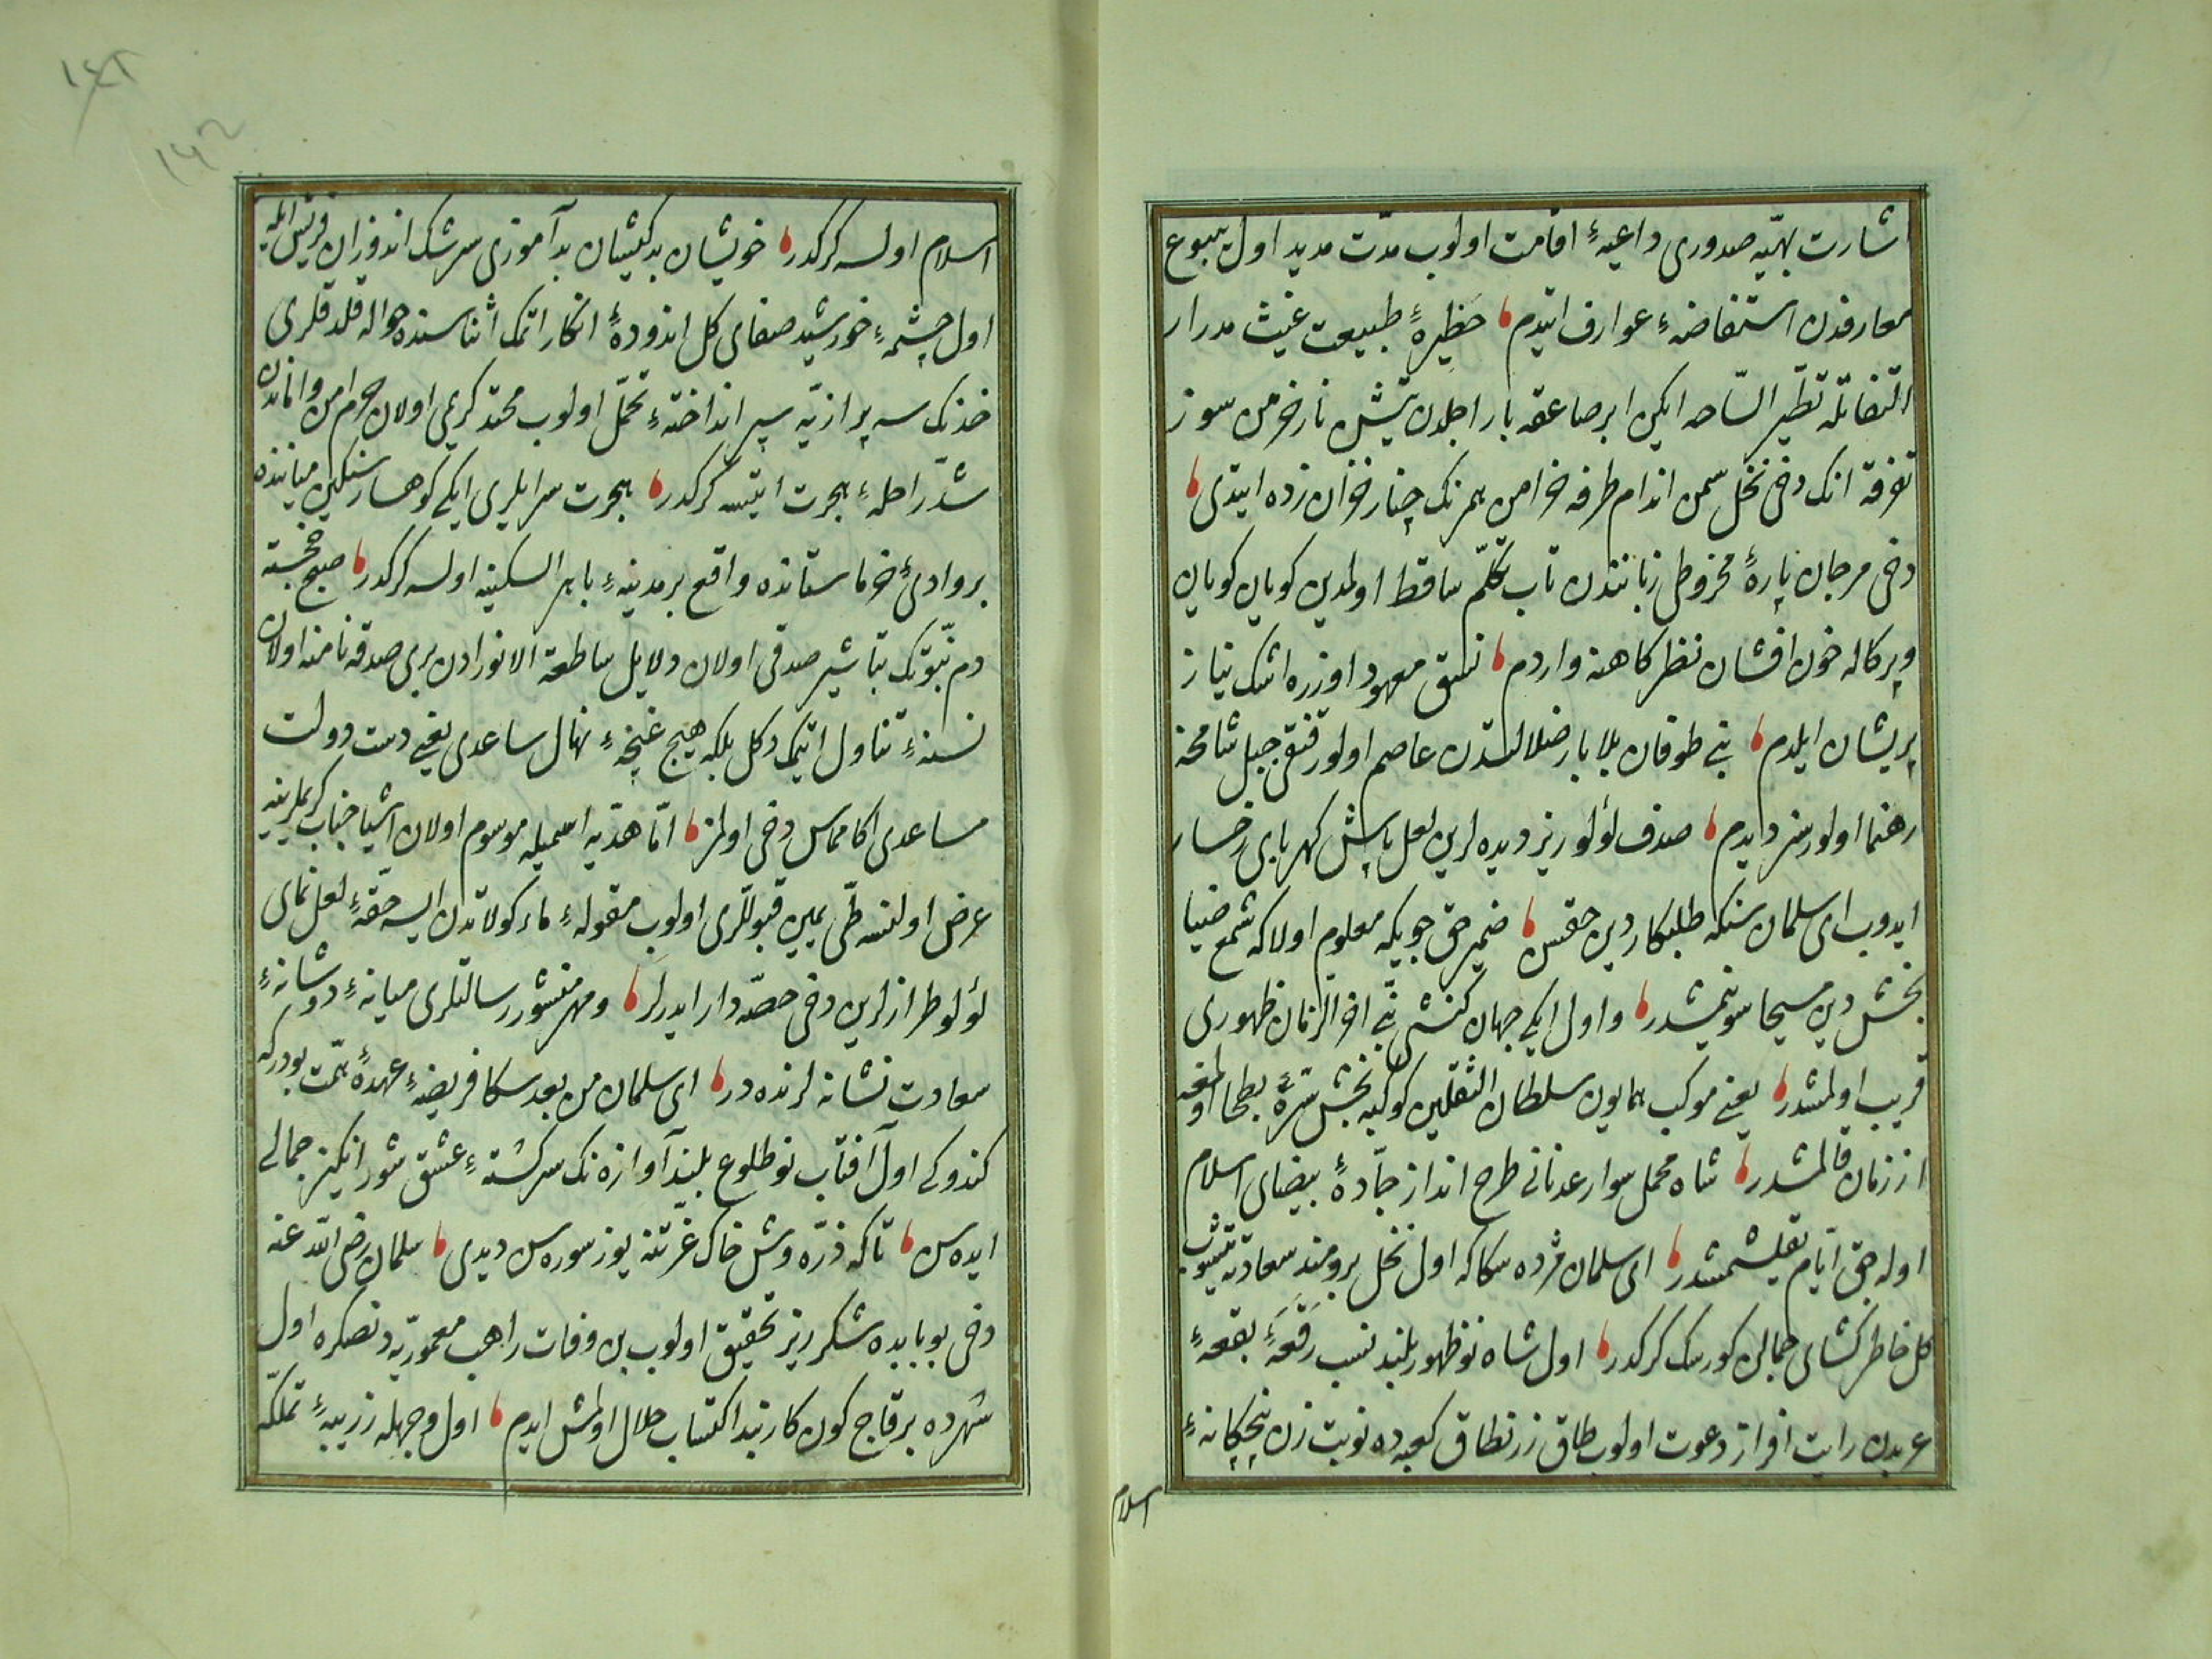 اشارت بهیّه صدوری داعیهٔ اقامت اولوب مدّت مدید اول ینبوع
معارفدن استفاضهٔ عوارف ایتدم حظیرهٔ طبیعت غیث مدرار
التفاتله تطیر السّاحه ایکن ابر صاعقه بار اجلدن آتش نار خرمن سوز
تفرقه انک دخی نخل سمن اندام طرفه خرامن همرنک چنار خزان زده ایتدی
دخی مرجان پارهٔ مخروطی زباننده تاب تکلّم ساقط اولمدین کویان کویان
و پرکاله خون افشان نظرکاهنه واردم نسق معهود اوزره اشک نیاز
پریشان ایلدم بنی طوفان بلا بار ضلالتدن عاصم اولور قنقی جبل شامخه
رهنما اولورسز دیدم صدف لؤلوریز دیده لرین لعل پاش کهربای رخسار
ایدوب ای سلمان سنکه طلبکار دین حقسن ضمیر حق جویکه معلوم اولاکه شمع ضیا
بخش دین مسیحا سوینمشدر و اول ایکی جهان کنشی نبی اخر الزمان ظهوری
قریب اولمشدر یعنی موکب همایون سلطان الثقلین کوکبه بخش سرّهٔ بطحا اولمغه
از زمان قالمشدر شاه محمل سوار عدنانی طرح انداز جادّهٔ بیضای اسلام
اوله جق ایّام یقلشمشدر ای سلمان مژده سکاکه اول نخل برومند سعادته یتیشوب
کل خاطر کشای جمالن کورسک کرکدر اول شاه نوظهور بلند نسب رقعهٔ بقعهٔ
عربدن رایت افراز دعوت اولوب طاق زرنطاق کعبه ده نوبت زن پنجکانهٔ
اسلام
اسلام اولسه کرکدر خویشان بدکیشان بدآموزی سرشک اندوزان قریش ایله
اول چشمهٔ خورشید صفای کل اندودهٔ انکار اتمک اثناسنده حواله قلدقلری
خدنک سه پر ازیّه سپر انداختهٔ تحمّل اولوب محتد کریمی اولان حرم امن و اماندن
شدّ راحلهٔ هجرت ایتسه کرکدر هجرت سرایلری ایکی کوهسار سنکین میاننده
بر وادئ خرماستانده واقع بر مدینهٔ باهر السکینه اولسه کرکدر صبح خجسته
دم نبوّتک تباشیر صدقی اولان دلایل ساطعة الانواردن بری صدقه نامنه اولان
نسنهٔ تناول اتمک دکل بلکه هیچ غنچهٔ نهال ساعدی یعنی دست دولت
مساعدی اکا مماس دخی اولمز امّا هدیّه اسمیله موسوم اولان اشیا جناب کریملرینه
عرض اولنسه طیّ یمین قبوللری اولوب مقولهٔ مأکولاتدن ایسه حقّهٔ لعل نمای
لؤلؤ طرازلرین دخی حصّه دار ایدرلر و مهر منشور رسالتلری میانهٔ دو شانهٔ
سعادت نشانه لرنده در ای سلمان من بعد سکا فریضهٔ عهدهٔ همّت بودرکه
کندوکی اول آفتاب نوطلوع بلند آوازه نک سرکشتهٔ عشق شورانکیز جمالی
ایده سن تاکه ذرّه وش خاک عزّتنه یوز سوره سن دیدی سلمان رضی الله عنه
دخی بو بابده شکرریز تحقیق اولوب بن وفات راهب معموریّه دنصکره اول
شهرده برقاچ کون کاربند اکتساب حلال اولمش ایدم اول وجهله زریبهٔ تملکه